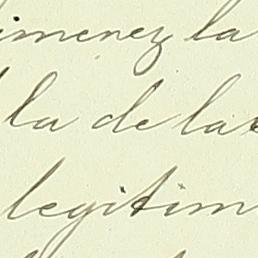 imenez la
la de la
legitim